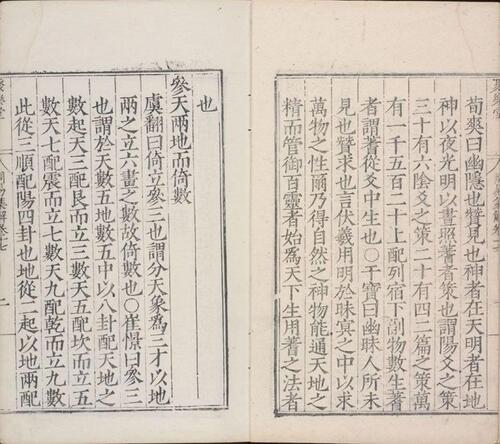 荀爽曰幽隱也贊見也神者在天明者在地
神以夜光明以晝照蓍者策也謂陽爻之策
三十有六陰爻之策二十有四二篇之策萬
有一千五百二十上配列宿下副物數生蓍
者謂蓍從爻中生也〇干寶曰幽昧人所未
見也贊求也言伏羲用明於昧冥之中以求
萬物之性爾乃得自然之神物能通天地之
精而管御百靈者始為天下生用蓍之法者
也
參天兩地而倚數
虞翻曰倚立參三也謂分天象為三才以地
兩之立六畫之數故倚數也〇崔憬曰參三
也謂於天數五地數五中以八卦配天地之
數起天三配艮而立三數天五配坎而立五
數天七配震而立七數天九配乾而立九數
此從三順配陽四卦也地從二起以地兩配
聚樂堂
周易集解卷十七
二